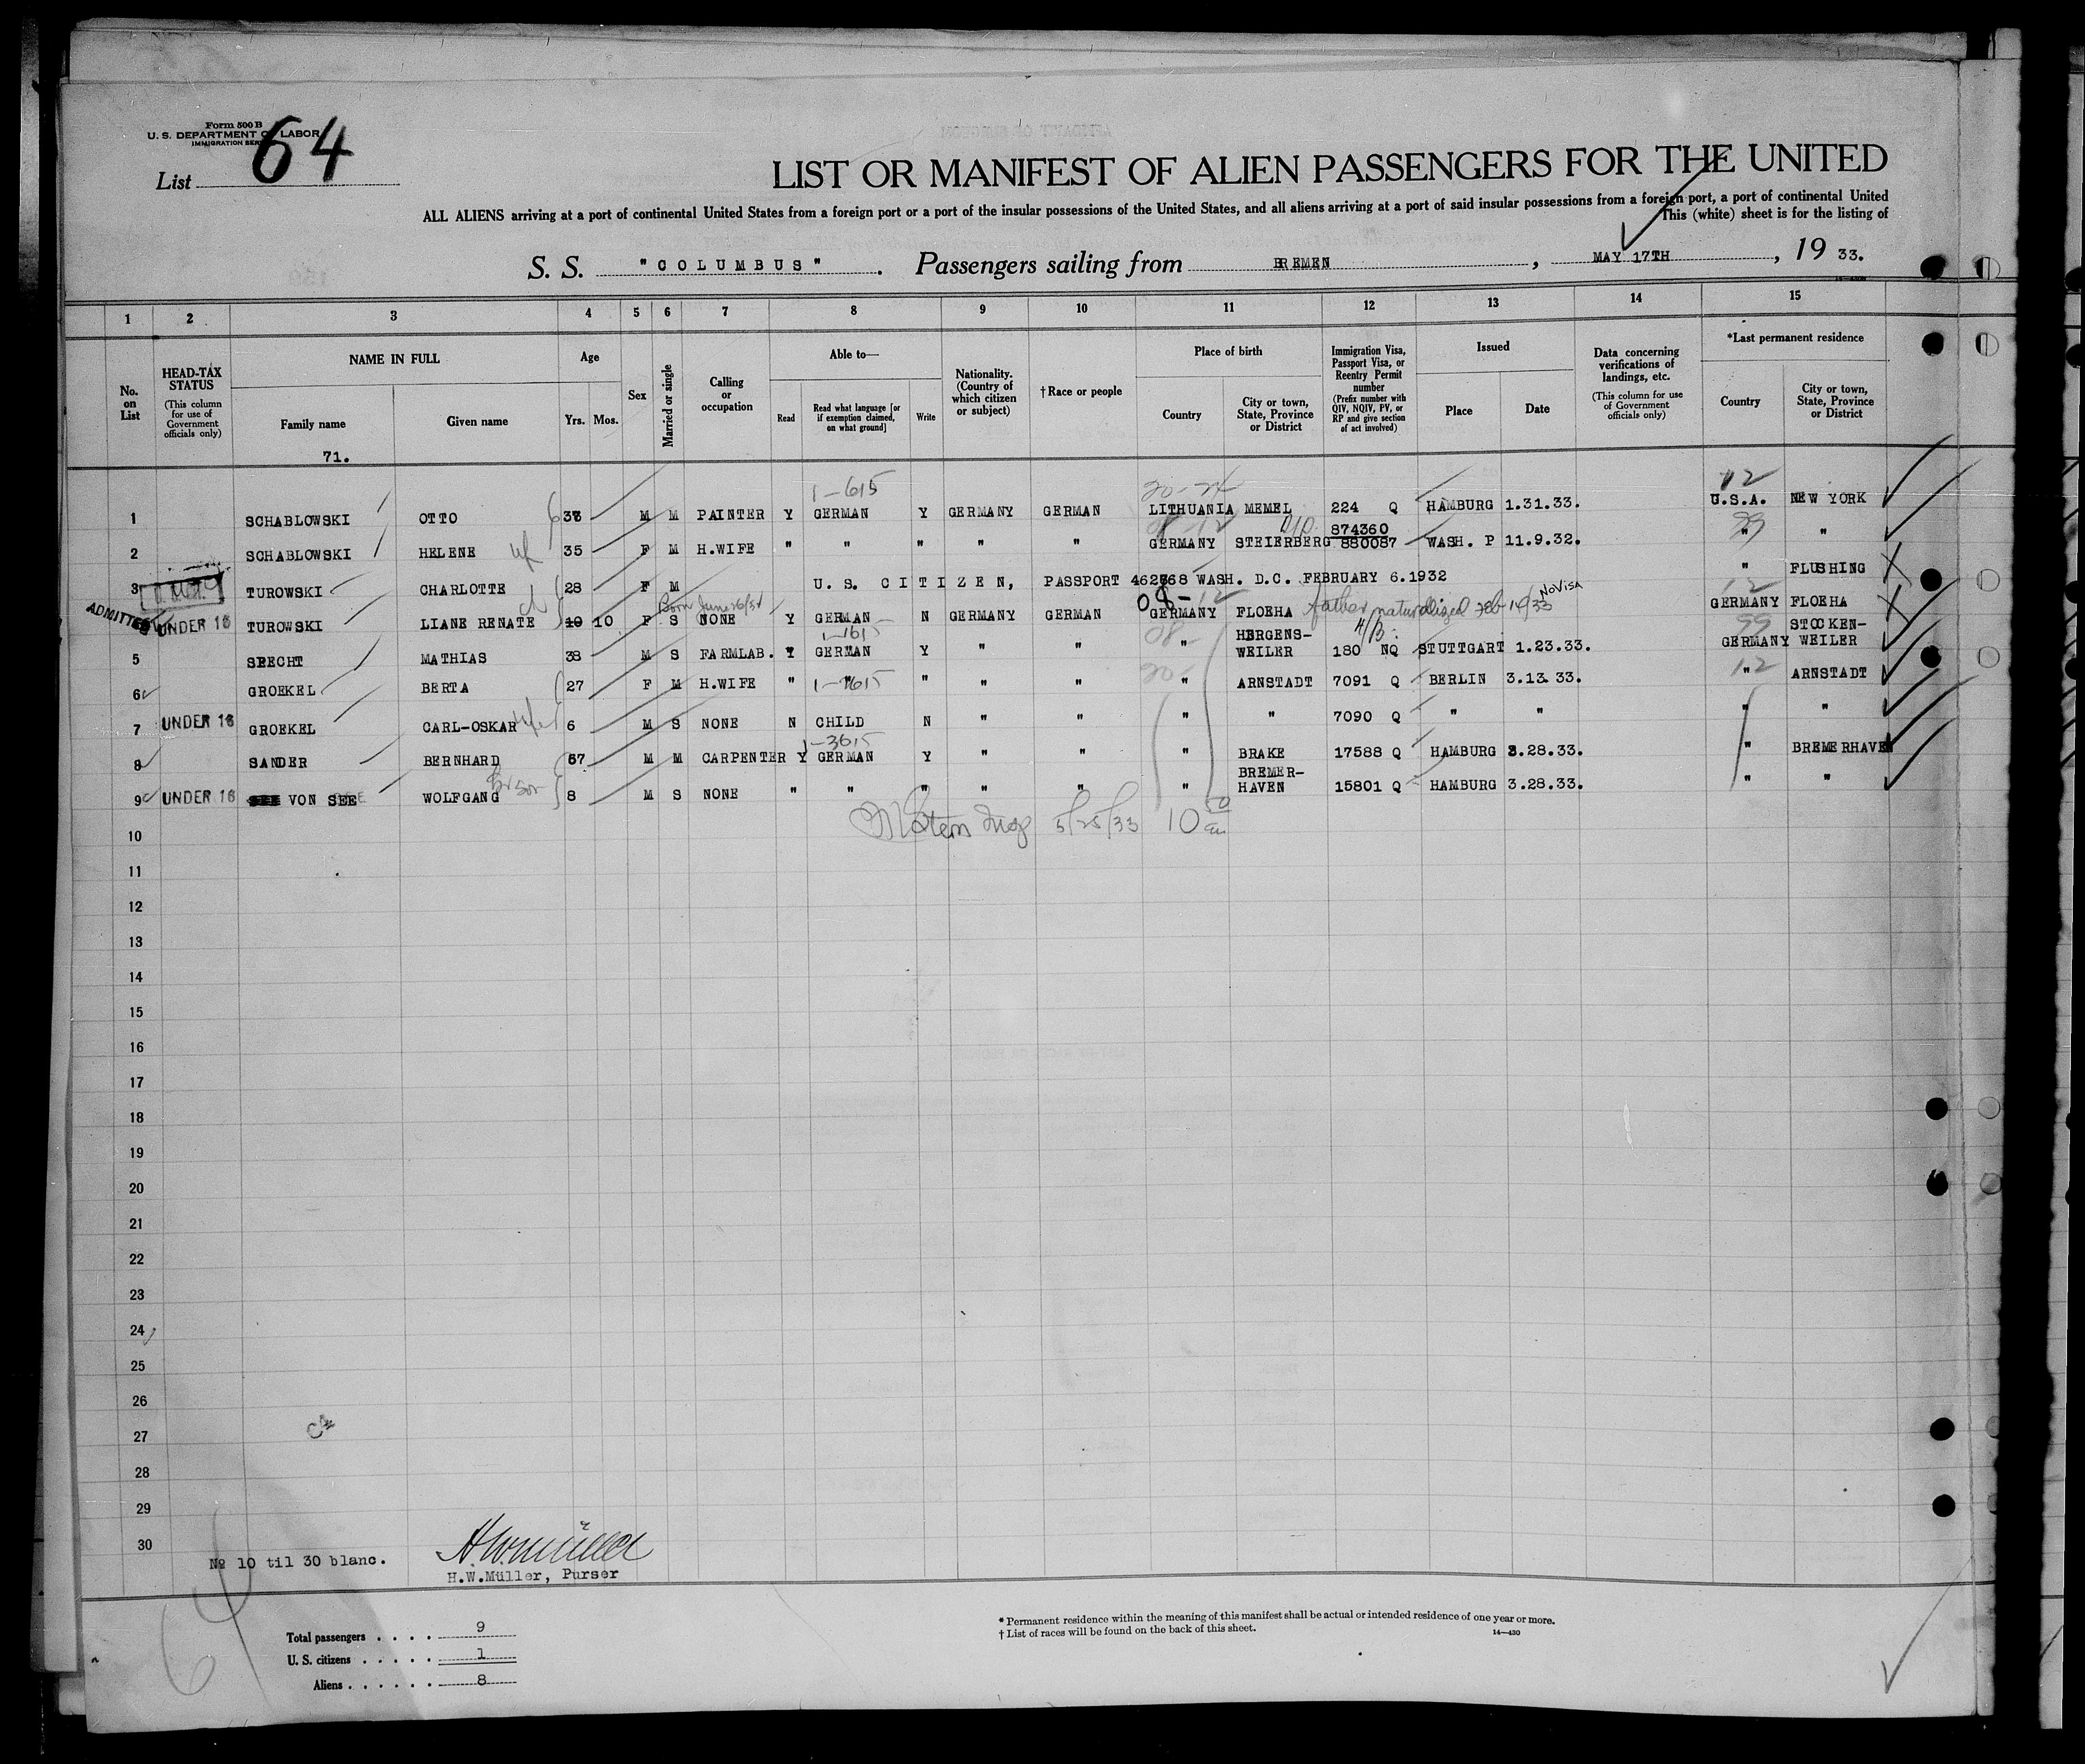 Form 500 B
U. S. DEPARTMENT OF LABOR
IMMIGRATION SER
List 64
LIST OR MANIFEST OF ALIEN PASSENGERS FOR THE UNITED
ALL ALIENS arriving at a port of continental United States from a foreign port or a port of the insular possessions of the United States, and all aliens arriving at a port of said insular possessions from a foreign port, a port of continental United
This (white) sheet is for the listing of
S. S. "COLUMBUS". Passengers sailing from BREMEN, MAY 17TH, 19 33.
1 2 3 4 5 6 7 8 9 10 11 12 13 14 15
No. on List
HEAD-TAX STATUS (This column for use of Government officials only)
NAME IN FULL
Family name
Given name
Age
Yrs. Mos.
Sex
Married or single
Calling or occupation
Able to—
Read
Read what language [or if exemption claimed, on what ground]
Write
Nationality. (Country of which citizen or subject)
†Race or people
Place of birth
Country
City or town, State, Province or District
Immigration Visa, Passport Visa, or Reentry Permit number (Prefix number with QIV, NQIV, PV, or RP and give section of act involved)
Issued
Place
Date
Data concerning verifications of landings, etc. (This column for use of Government officials only)
*Last permanent residence
Country
City or town, State, Province or District
71.
1-615 12
1 SCHABLOWSKI OTTO M M PAINTER Y GERMAN Y GERMANY GERMAN LITHUANIA MEMEL 224 Q HAMBURG 1.31.33. U.S.A. NEW YORK
874360
2 SCHABLOWSKI HELENE wf 35 F M H.WIFE " " " " " GERMANY STEIERBERG 880087 WASH. P 11.9.32. " "
3 TUROWSKI CHARLOTTE 28 F M U. S. CITIZEN, PASSPORT WASH. D.C. FEBRUARY 6.1932 " FLUSHING
No VISA
ADMITTED UNDER 16 TUROWSKI LIANE RENATE 10 10 F S NONE Y GERMAN N GERMANY GERMAN GERMANY FLOEHA father naturalized Feb 19/33 GERMANY FLOEHA
1-1615 HERGENS- STOCKEN-
5 SPECHT MATHIAS 38 M S FARMLAB. Y GERMAN Y " " " WEILER 180 NQ STUTTGART 1.23.33. GERMANY WEILER
6 GROEKEL BERTA 27 F M H.WIFE " " " " " " ARNSTADT 7091 Q BERLIN 3.13.33. " ARNSTADT
7 UNDER 16 GROEKEL CARL-OSKAR 6 M S NONE N CHILD N " " " " 7090 Q " " " "
1-3615
8 SANDER BERNHARD 57 M M CARPENTER Y GERMAN Y " " " BRAKE 17588 Q HAMBURG 3.28.33. " BREMERHAVEN
BREMER-
9 UNDER 16 VON SEE WOLFGANG 8 M S NONE " " " " " " HAVEN 15801 Q HAMBURG 3.28.33. " "
5/25/33 10
10
11
12
13
14
15
16
17
18
19
20
21
22
23
24
25
26
27
28
29
30
No 10 til 30 blanc.
H.W.Müller
H.W.Müller, Purser
Total passengers . . . . 9
U. S. citizens . . . . . 1
Aliens . . . . . . 8
* Permanent residence within the meaning of this manifest shall be actual or intended residence of one year or more.
† List of races will be found on the back of this sheet.
14—430
64